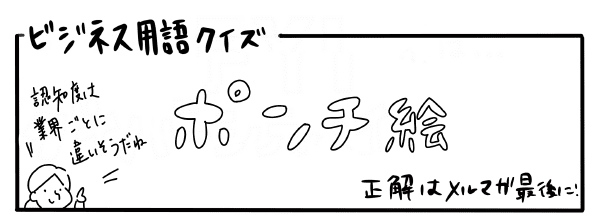 ビジネス用語クイズ
認知度は
業界ごとに
違いそうだね
ポンチ絵
正解はメルマガ最後に!